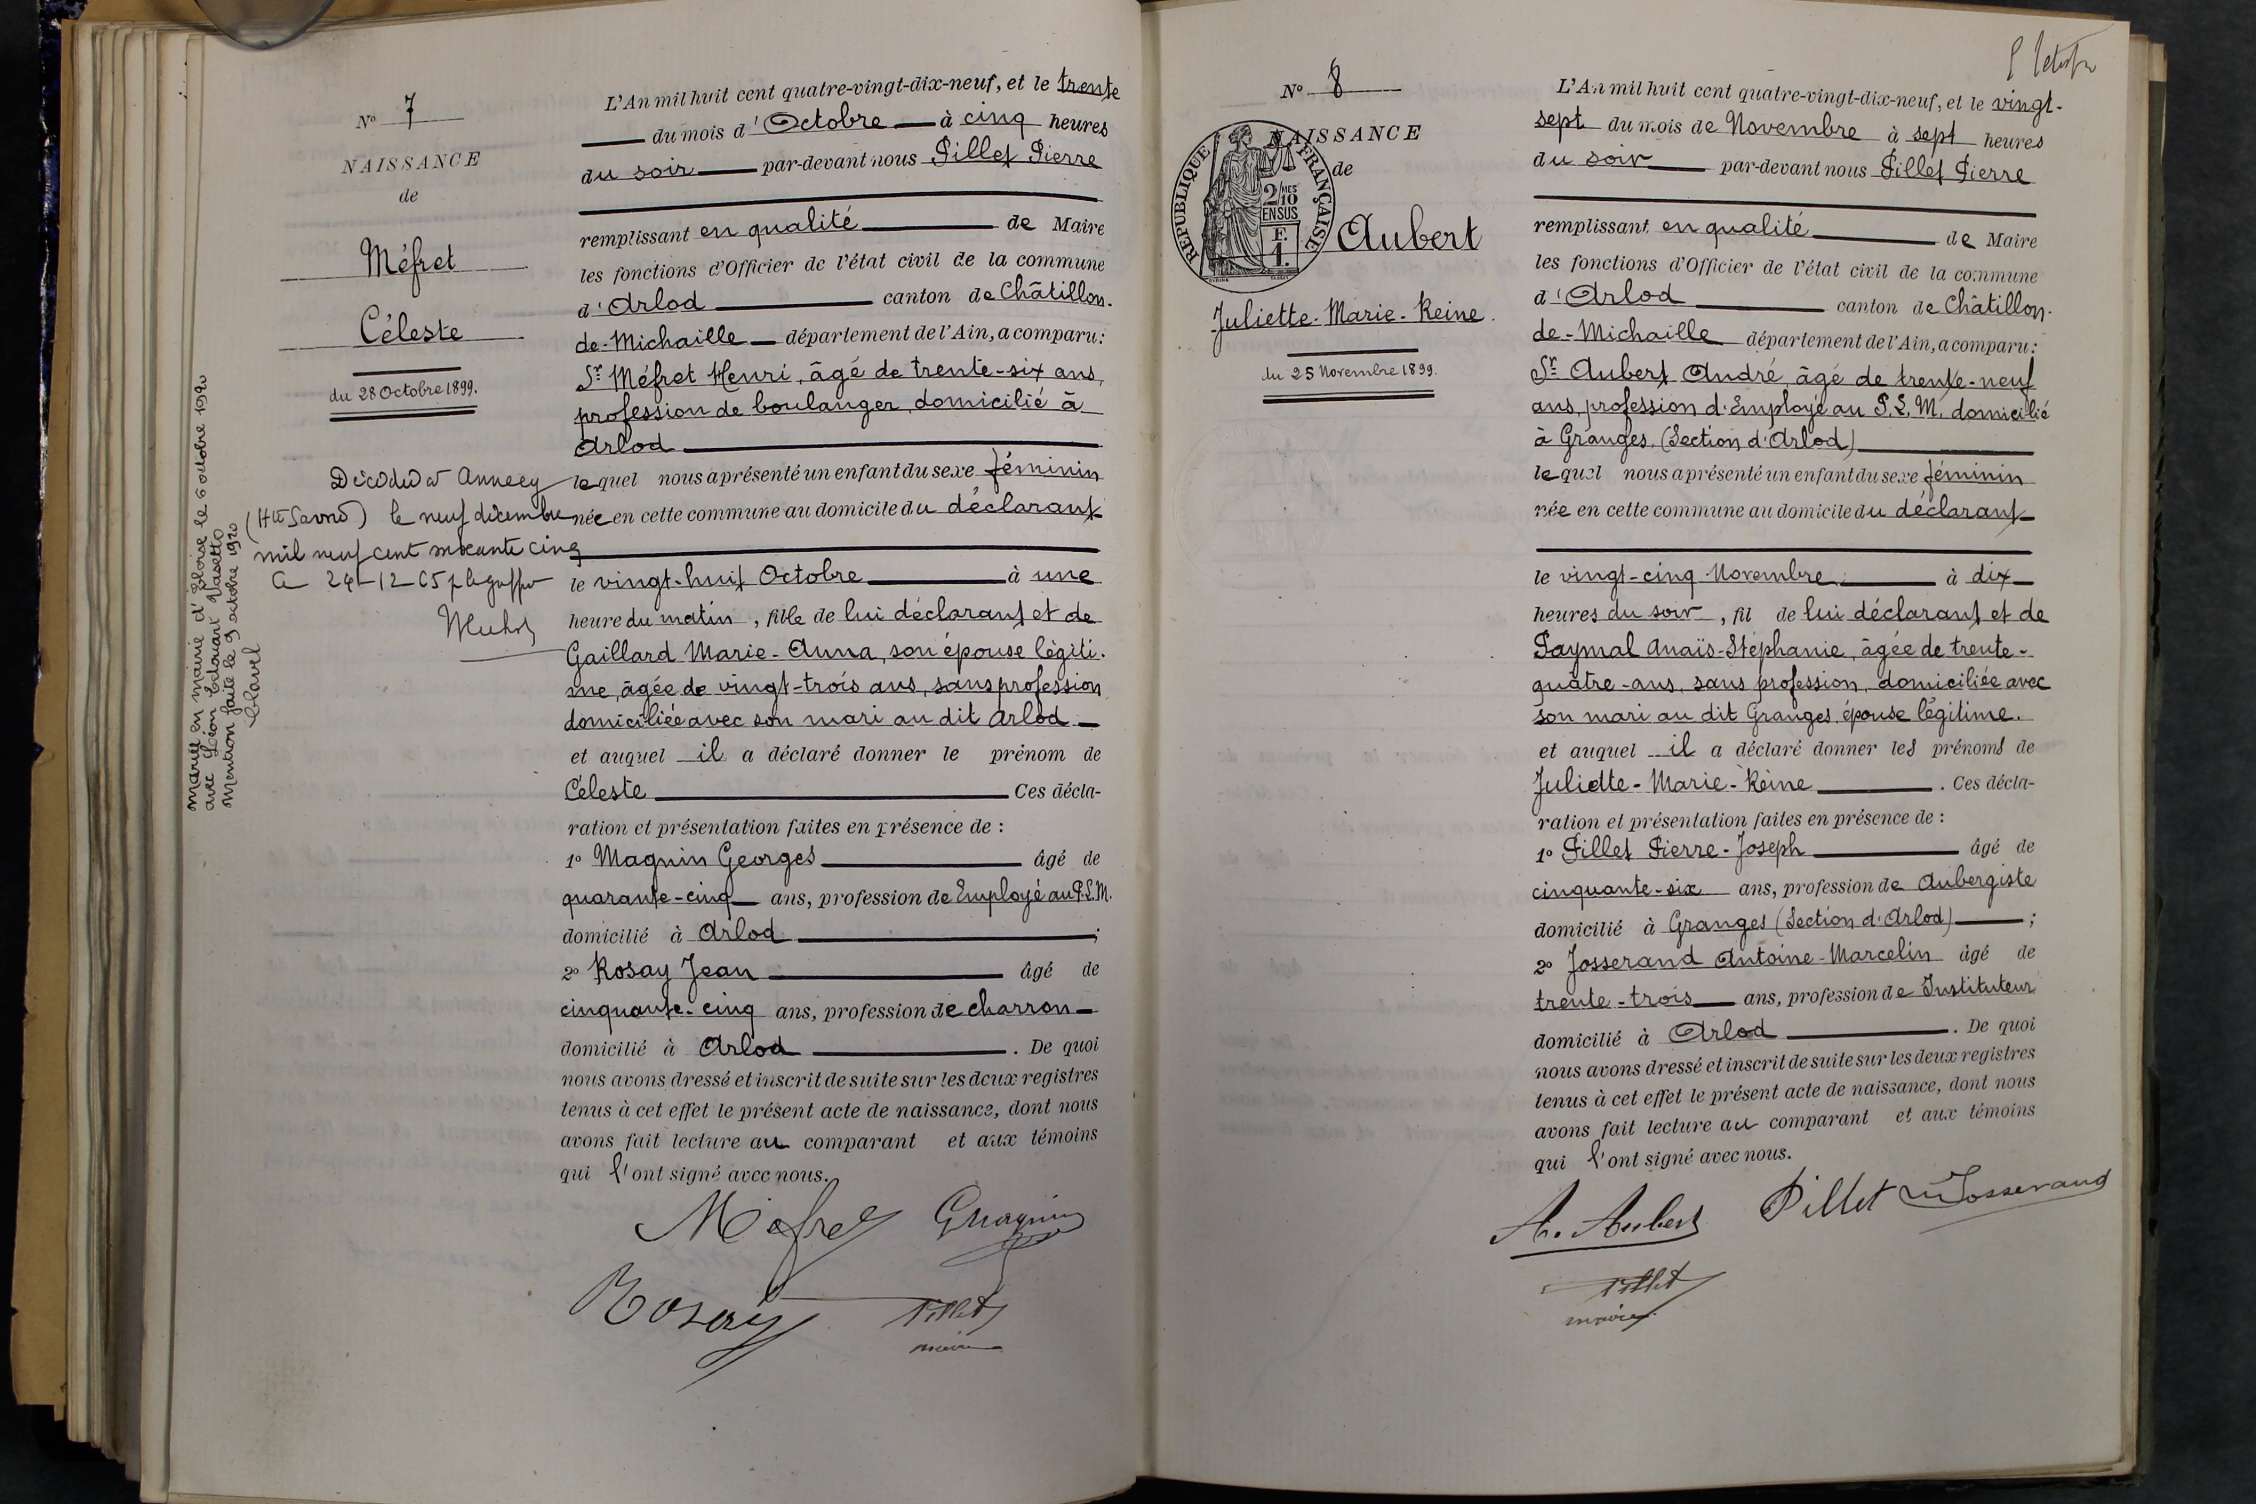 N° 7
NAISSANCE
de
Méfret
Céleste
du 28 Octobre 1899.
Décédée à Annecy
(Hte Savoie) le neuf décembre
mil neuf cent soixante cinq
24-12-65
mariée en mairie d'Eloise le 6 octobre 1920
avec Léon Edouart Vasetto
Mention faite le 9 octobre 1920
Clavel
L'An mil huit cent quatre-vingt-dix-neuf, et le trente
du mois d'Octobre à cinq heures
du soir par-devant nous Pillet Pierre
remplissant en qualité de Maire
les fonctions d'Officier de l'état civil de la commune
d'Arlod canton de Châtillon-
de-Michaille département de l'Ain, a comparu:
Sr Méfret Henri, âgé de trente-six ans,
profession de boulanger, domicilié à
Arlod
lequel nous a présenté un enfant du sexe féminin
née en cette commune au domicile du déclarant
le vingt-huit Octobre à une
heure du matin, fille de lui déclarant et de
Gaillard Marie-Anna, son épouse légiti-
me, âgée de vingt-trois ans, sans profession
domiciliée avec son mari au dit Arlod
et auquel il a déclaré donner le prénom de
Céleste Ces décla-
ration et présentation faites en présence de :
1° Magnin Georges âgé de
quarante-cinq ans, profession de Employé au P.L.M.
domicilié à Arlod ;
2° Rosay Jean âgé de
cinquante-cinq ans, profession de charron
domicilié à Arlod . De quoi
nous avons dressé et inscrit de suite sur les deux registres
tenus à cet effet le présent acte de naissance, dont nous
avons fait lecture au comparant et aux témoins
qui l'ont signé avec nous.
Méfret GMagnin
Rosay Pillet
maire
N° 8
NAISSANCE
de
RÉPUBLIQUE FRANÇAISE
2/10 MES
EN SUS
F.
1.
Aubert
Juliette-Marie-Reine.
du 25 Novembre 1899.
L'An mil huit cent quatre-vingt-dix-neuf, et le vingt-
sept du mois de Novembre à sept heures
du soir par-devant nous Pillet Pierre
remplissant en qualité de Maire
les fonctions d'Officier de l'état civil de la commune
d'Arlod canton de Châtillon-
de-Michaille département de l'Ain, a comparu:
Sr Aubert André, âgé de trente-neuf
ans, profession d'Employé au P.L.M. domicilié
à Granges, (Section d'Arlod)
lequel nous a présenté un enfant du sexe féminin
née en cette commune au domicile du déclarant
le vingt-cinq Novembre à dix
heures du soir, fil de lui déclarant et de
Paymal Anaïs-Stéphanie, âgée de trente-
quatre-ans, sans profession, domiciliée avec
son mari au dit Granges, épouse légitime.
et auquel il a déclaré donner les prénoms de
Juliette-Marie-Reine . Ces décla-
ration et présentation faites en présence de :
1° Pillet Pierre-Joseph âgé de
cinquante-six ans, profession de Aubergiste
domicilié à Granges (Section d'Arlod) ;
2° Josserand Antoine-Marcelin âgé de
trente-trois ans, profession de Instituteur
domicilié à Arlod . De quoi
nous avons dressé et inscrit de suite sur les deux registres
tenus à cet effet le présent acte de naissance, dont nous
avons fait lecture au comparant et aux témoins
qui l'ont signé avec nous.
A. Aubert Pillet Josserand
Pillet
maire